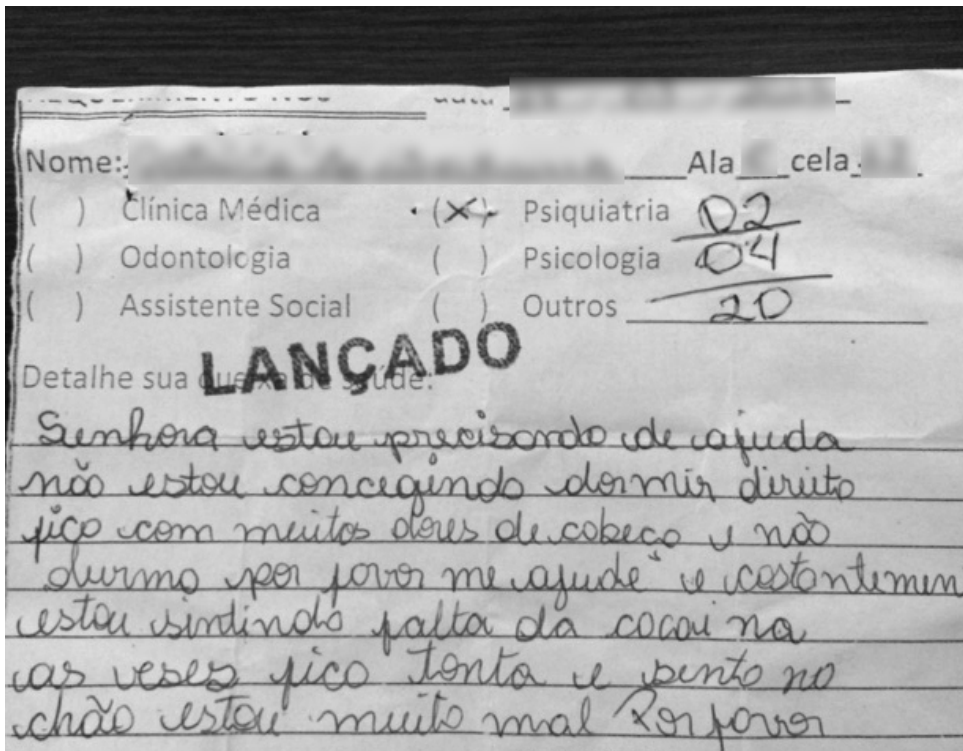 data
Nome: Ala cela
( ) Clínica Médica (X) Psiquiatria 02
( ) Odontologia ( ) Psicologia 04
( ) Assistente Social ( ) Outros 20
LANÇADO
Detalhe sua queixa de saúde:
Senhora estou precisando de ajuda
não estou concegindo dormir direito
fico com muitos dores de cabeça e não
durmo por favor me ajude e costantemen
estou sintindo falta da cocai na
as veses fico tonta e sento no
chão estou muito mal Por favor